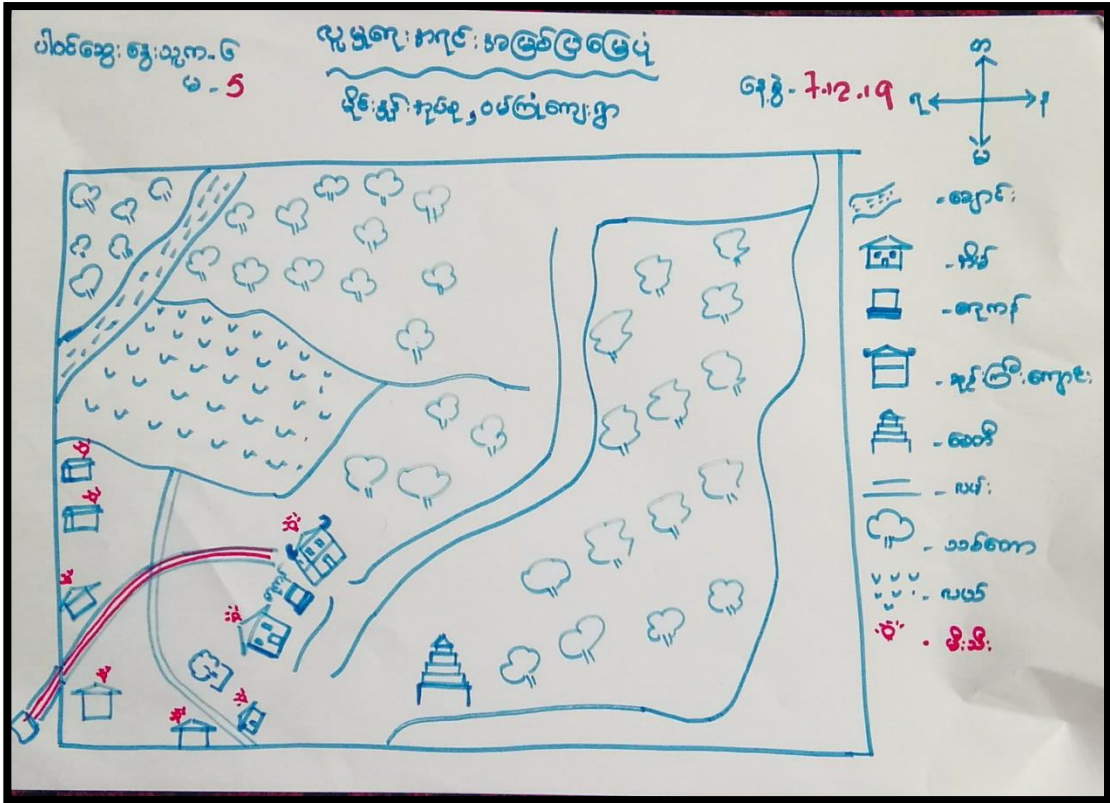 ပါဝင်ဆွေးနွေးသူ ကျ-၆
မ - 5
လူမှုရေးအရင်းအမြစ်ပြမြေပုံ
မိုင်းနှုန်းအုပ်စု, ဝမ်ကြုံကျေးရွာ
နေ့စွဲ - 7.12.19
တ
ရ
န
မ
- ချောင်း
- အိမ်
- စတုကန်
- ဘုန်းကြီးကျောင်း
- စေတီ
- လမ်း
- သစ်တော
- လယ်
- မီးသီး